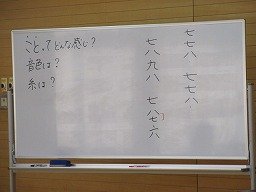 ことってどんな感じ？
音色は？
糸は？
七七八 七七八
七八九八 七八七六